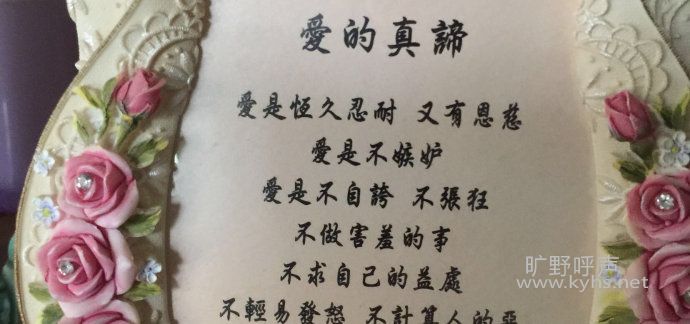 愛的真諦
愛是恆久忍耐 又有恩慈
愛是不嫉妒
愛是不自誇 不張狂
不做害羞的事
不求自己的益處
不輕易發怒 不計算人的惡
旷野呼声
www.kyhs.net